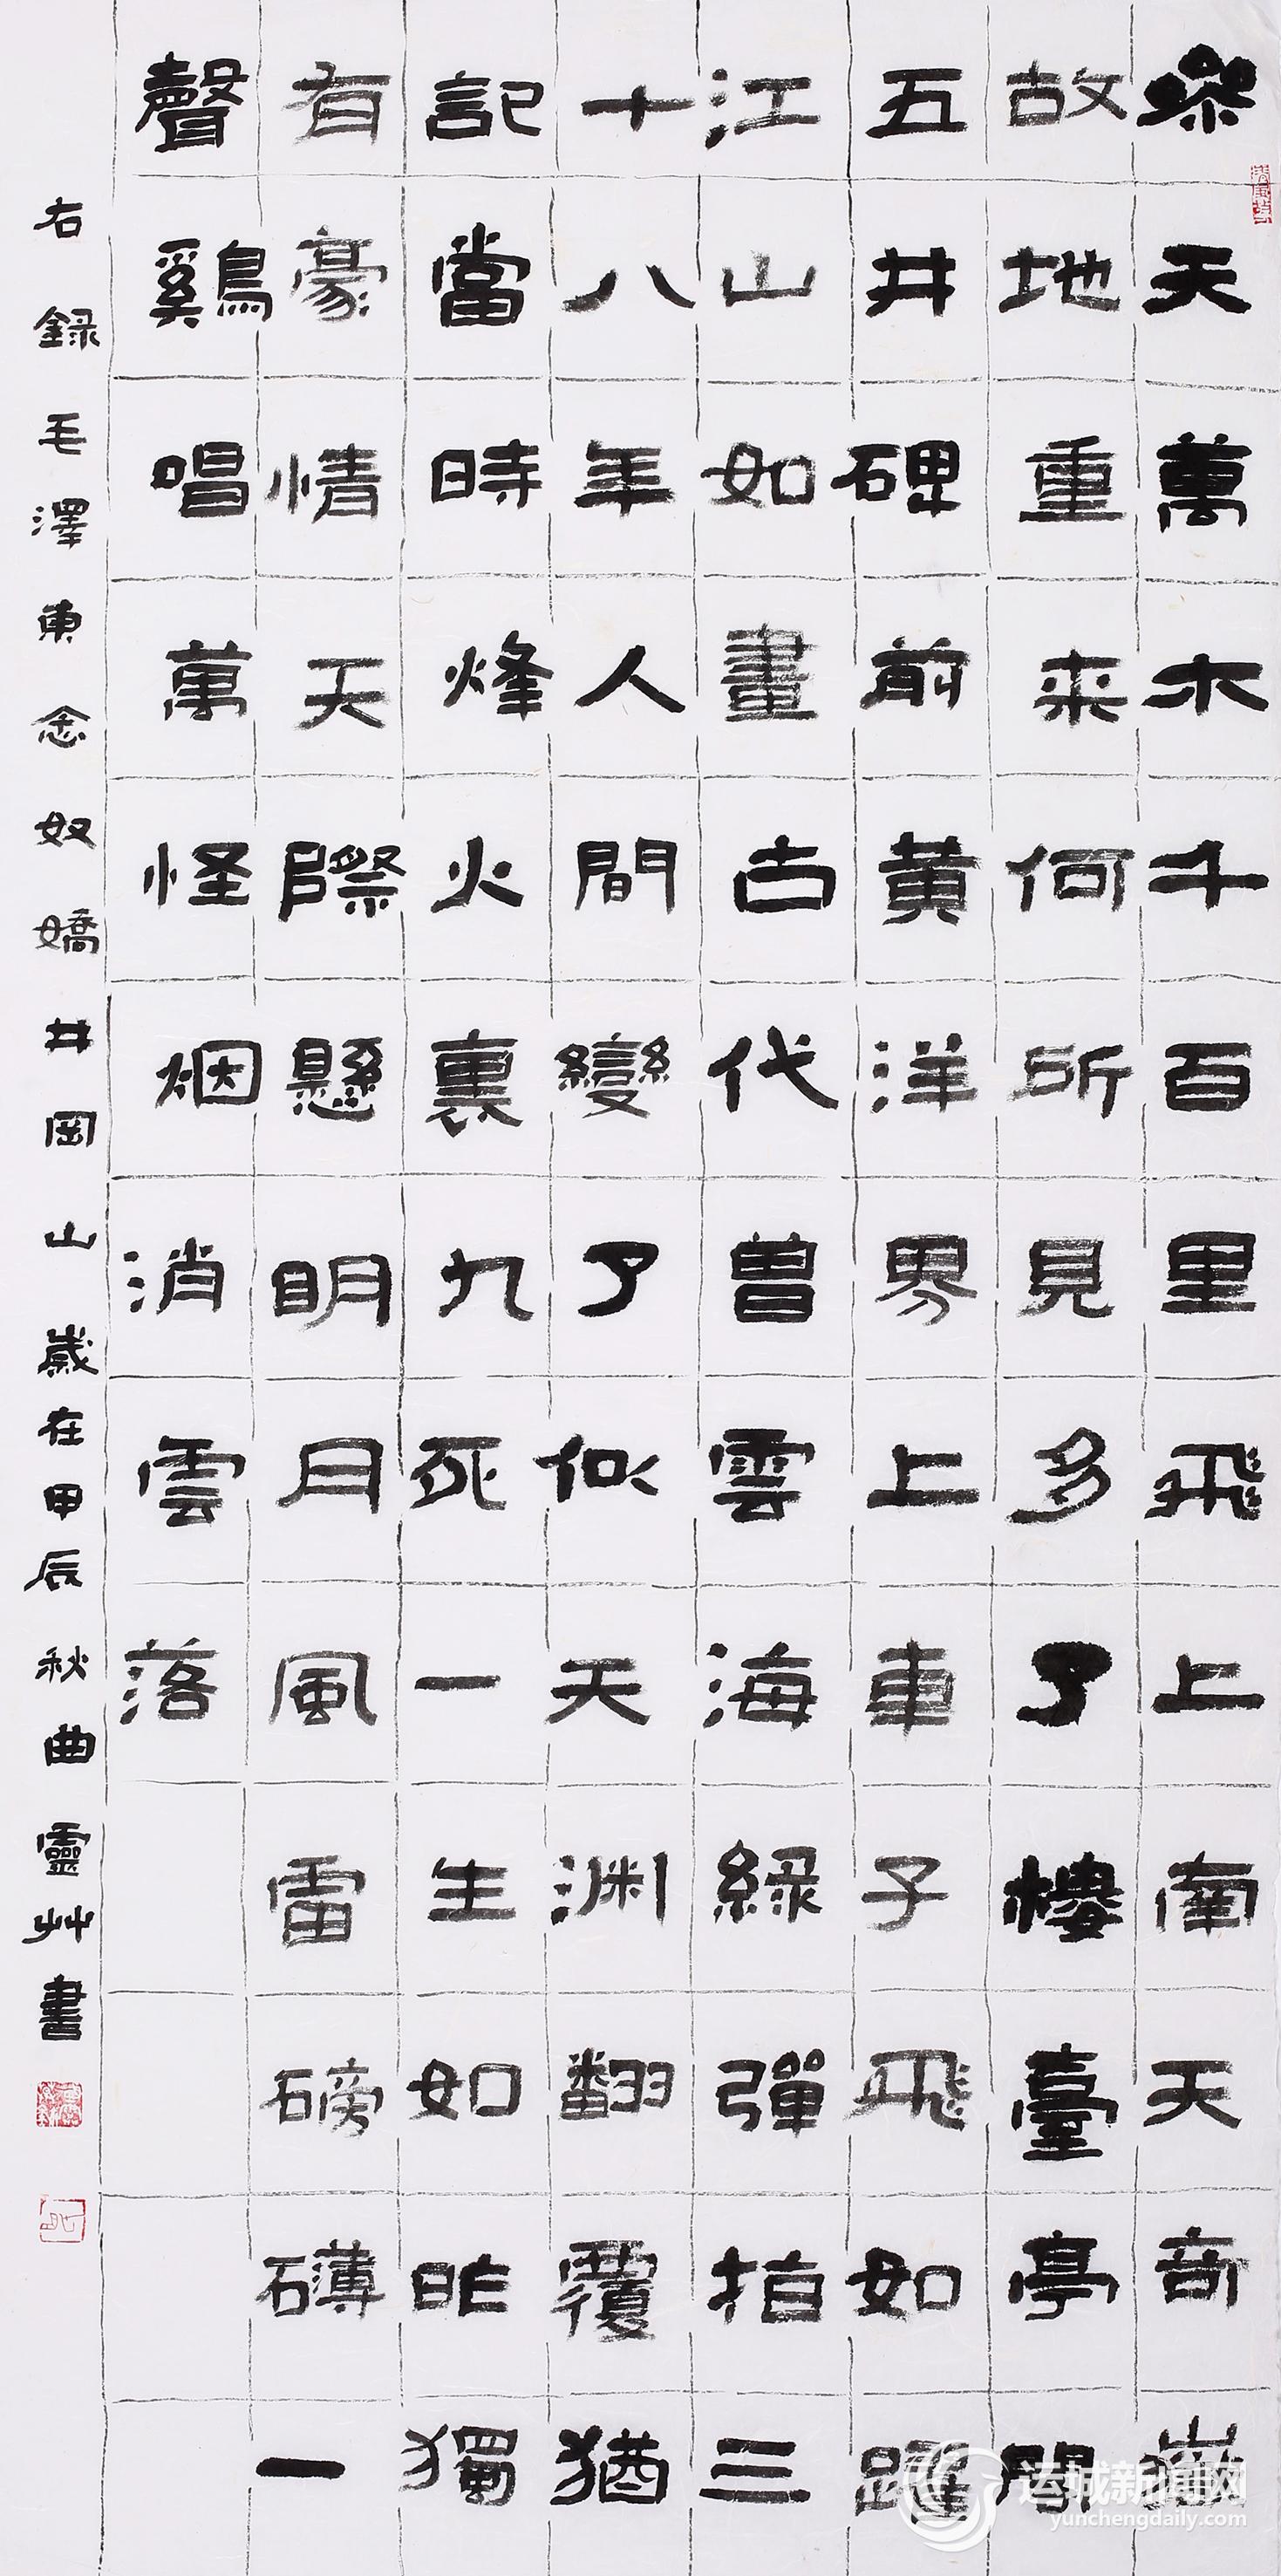 參天萬木千百里飛上南天奇嶽
故地重来何所見多了樓臺亭閣
五井碑前黄洋界上車子飛如躍
江山如畫古代曾雲海緑彈指三
十八年人間變了似天渊翻覆猶
記當時烽火裏九死一生如昨獨
有豪情天際懸明月風雷磅礴一
聲鷄唱萬怪烟消雲落
右録毛澤東念奴嬌井岡山歲在甲辰秋曲靈艸書
运城新闻网
yunchengdaily.com